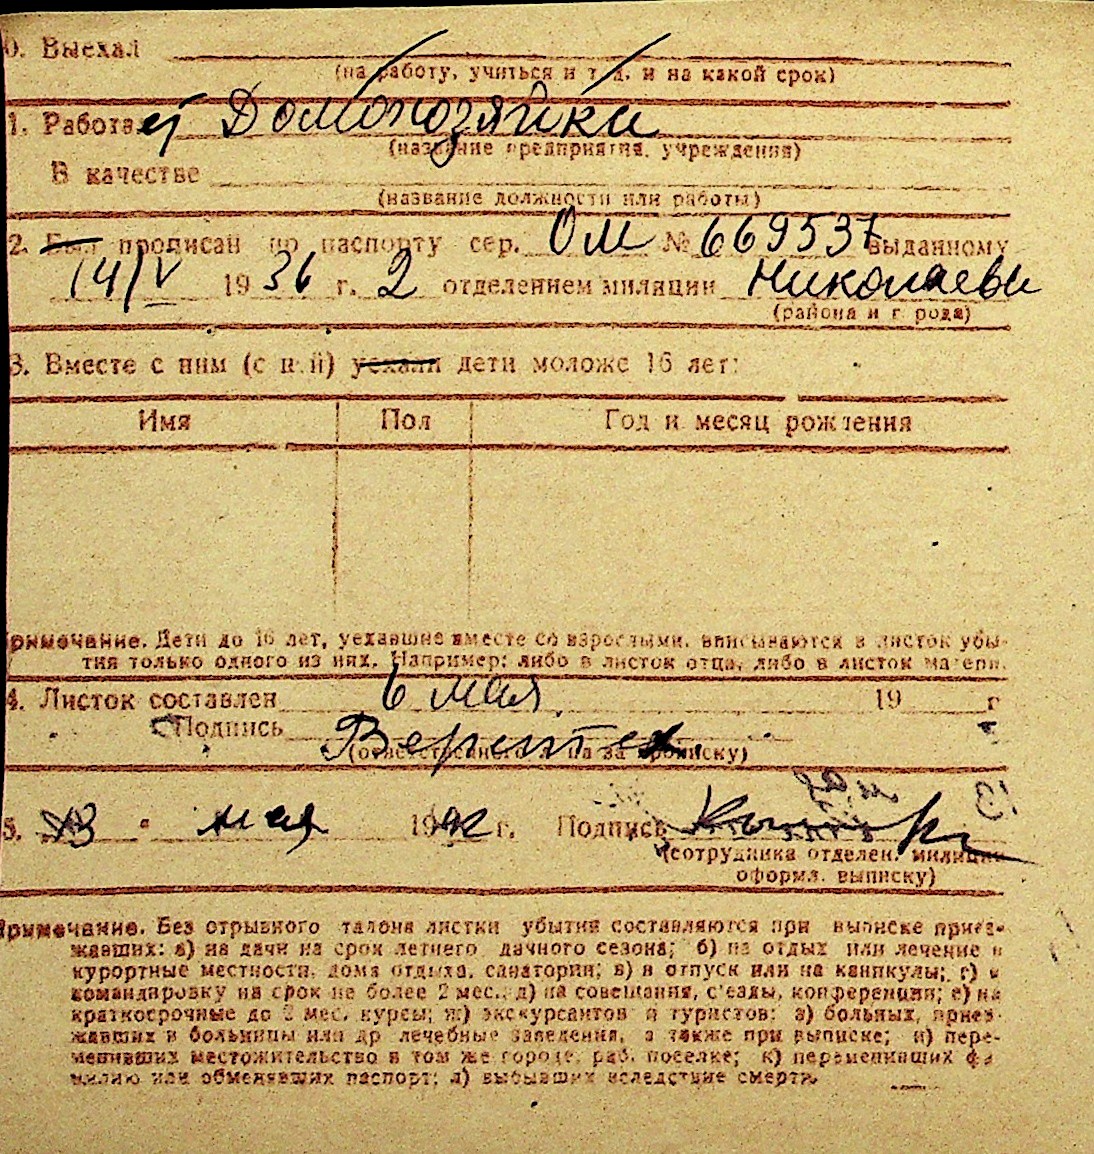 0. Выехал
(на работу, учиться и т. д. и на какой срок)
1. Работает Домохозяйка
(название предприятия, учреждения)
В качестве
(название должности или работы)
2. Был прописан по паспорту сер. ОМ № 669537 выданному
14/V 1936 г. 2 отделением милиции Николаевы
(района и города)
3. Вместе с ним (с ней) уехали дети моложе 16 лет:
Имя Пол Год и месяц рождения
Примечание. Дети до 16 лет, уехавшие вместе со взрослыми, вписываются в листок убы-
тия только одного из них. Например: либо в листок отца, либо в листок матери.
4. Листок составлен 6 мая 19 г
Подпись
(ответственного лица за прописку)
5. 13 " мая 19 г. Подпись
(сотрудника отделен. милиции
оформл. выписку)
Примечание. Без отрывного талона листки убытия составляются при выписке приез-
жавших: а) на дачи на срок летнего дачного сезона; б) на отдых или лечение в
курортные местности, дома отдыха, санатории; в) в отпуск или на каникулы; г) в
командировку на срок не более 2 мес.; д) на совещания, с'езды, конференции; е) на
краткосрочные до 2 мес. курсы; ж) экскурсантов и туристов; з) больных, приез-
жавших в больницы или др лечебные заведения, а также при выписке; и) пере-
менивших местожительство в том же городе, раб. поселке; к) переменивших фа
милию или обменявших паспорт; л) выбывших вследствие смерти.